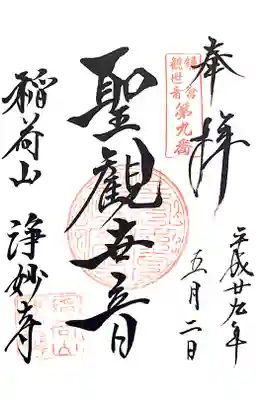 奉拝
鎌倉
観世音
第九番
平成廿九年
五月二日
聖観世音
稲荷山 浄妙寺